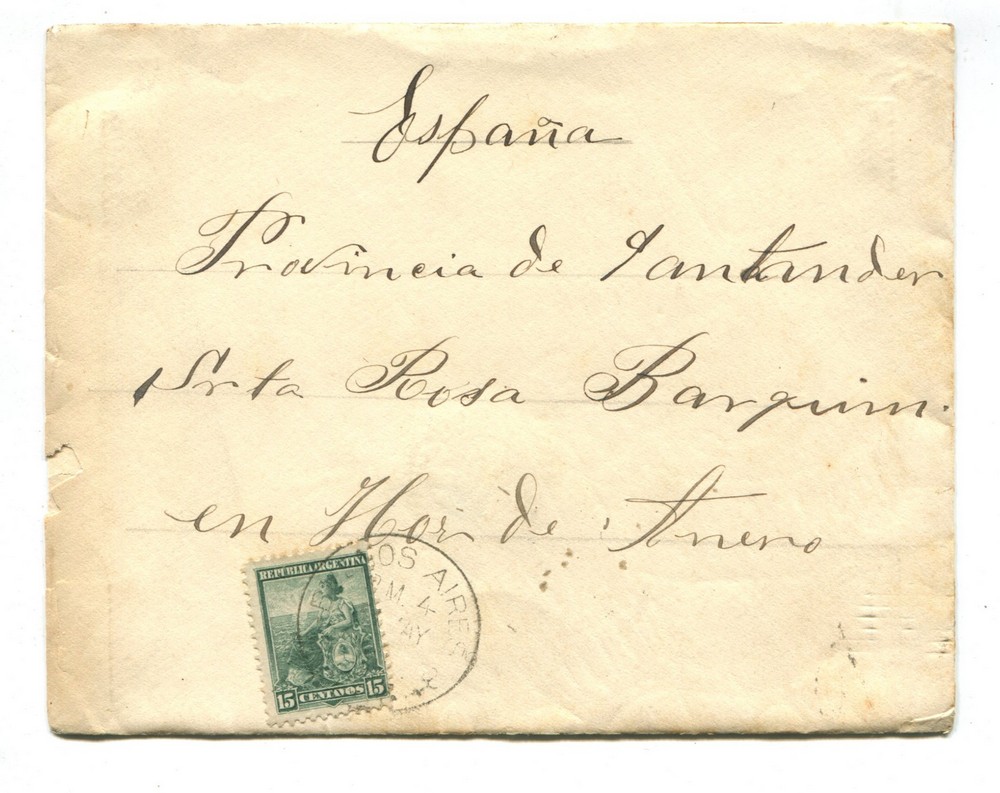 España
Provincia de Santander
Srta Rosa Barquin.
en Hoz de Anero
REPUBLICA ARGENTINA
15 CENTAVOS 15
OS AIRES
M. 4
AY